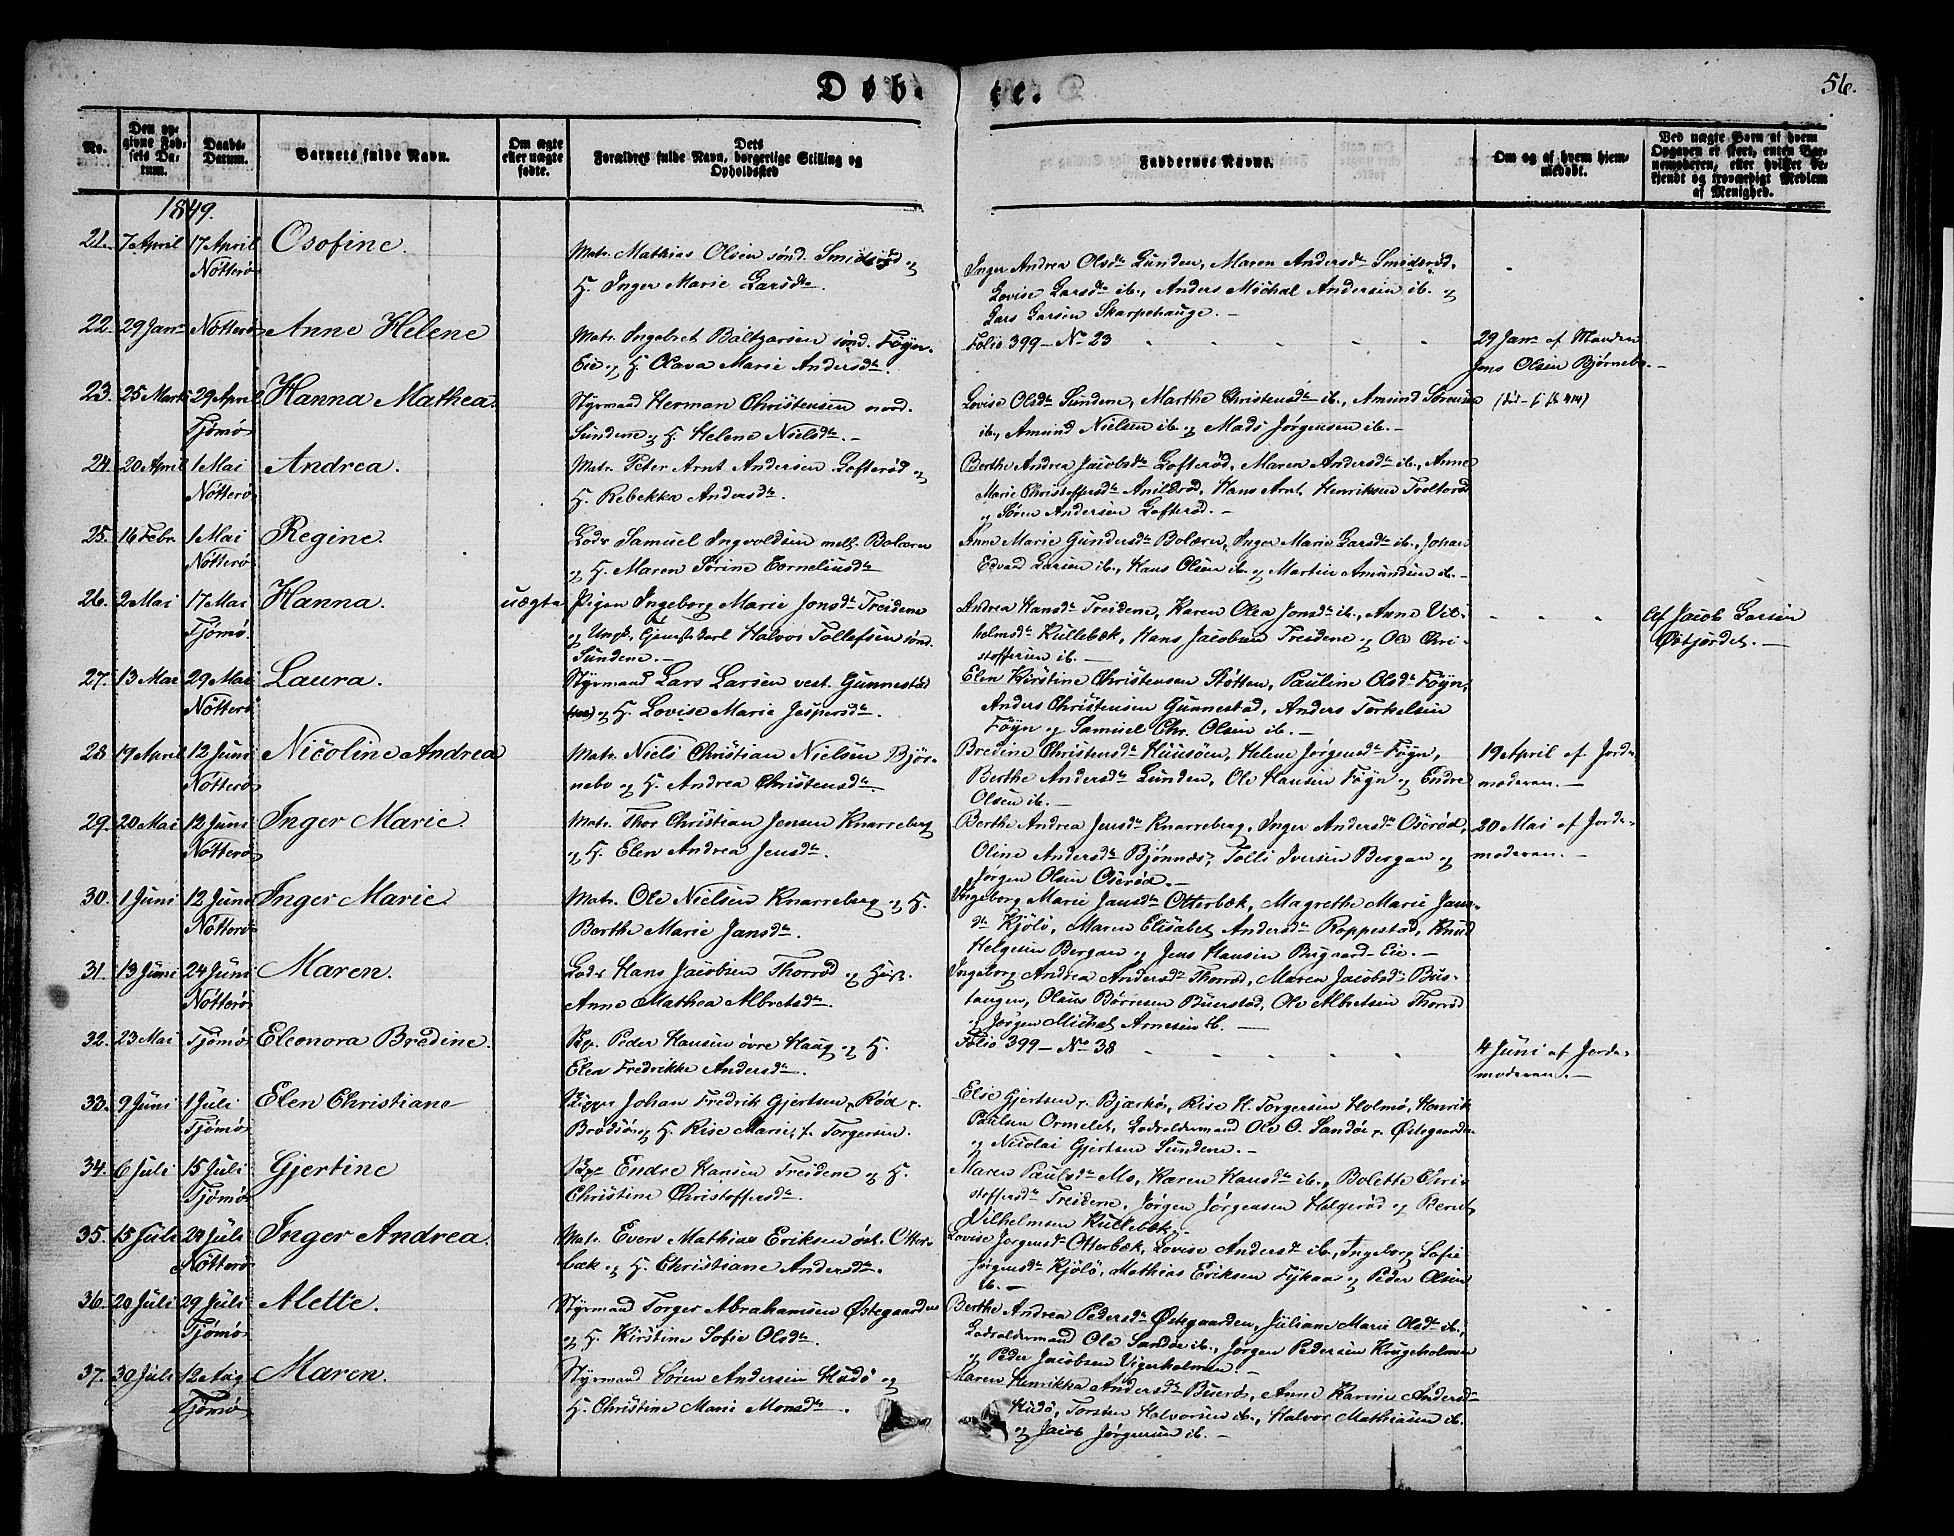 Døb- te.
56.
No.
Den op-
givne Fød-
sels Da-
tum.
Daabs-
Datum.
Barnets fulde Navn.
Om ægte
eller uægte
fødte.
Dets
Forældres fulde Navn, borgerlige Stilling og
Opholdssted
Faddernes Navne.
Om og af hvem hjem-
medøbt.
Ved uægte Børn af hvem
Opgaven er skeet, enten Bar-
nemoderen, eller hvilket be-
kjendt og troværdigt Medlem
af Menighed.
1849.
21. 7 April 17 April Osofine.
Nötterö
Matr. Mathias Olsen sönd. Smidsröd og
H. Inger Marie Larsdtr.
Inger Andrea Olsdtr Lunden, Maren Andersdtr Smidsröd,
Lovise Larsdtr ib., Anders Michal Andersen ib. og
Lars Larsen Skarpehauge. —
22. 29 Janr Nötterö Anne Helene
Matr. Ingebret Baltzarsen sönd. Föyn-
Eie og H. Olava Marie Andersdtr.
Folio 399 — No 23
29 Janr af Manden
Jens Olsen Björnebo. —
23. 25 Marts 29 April Hanna Mathea.
Tjømø
Styrmand Herman Christensen nord.
Sundene og H. Helene Nielsdtr. —
Lovise Olsdtr Sundene, Marthe Christensdtr ib., Amund Sörensen
ib., Amund Nielsen ib. og Mads Jörgensen ib. —
24. 20 April 1 Mai Andrea.
Nötterö
Matr. Peter Arnt Andersen Gofteröd og
H. Rebekka Andersdtr.
Berthe Andrea Jacobsdtr Gofteröd, Maren Andersdtr ib., Anne
Marie Christoffersdtr Hans Arnt Henriksen
og Sören Andersen Gofteröd. —
25. 16 Febr. 1 Mai Regine.
Nötterö
Lods Samuel Ingvoldsen mell. Bolæren
og H. Maren Sörine Corneliusdtr
Anne Marie Gundersdtr Bolæren, Inger Marie Larsdtr ib., Johan
Edvard Larsen ib., Hans Olsen ib. og Martin Amundsen ib. —
26. 2 Mai 17 Mai Hanna. uægte
Tjømø.
Pigen Ingeborg Marie Jonsdtr Treidene
og Ungk. Halvor Tollefsen sönd.
Sundene. —
Andrea Hansdtr Treidene, Karen Olea Jonsdtr ib., Anne Vil-
helmsdtr Kullebæk, Hans Jacobsen Treidene og Ole Chri-
stoffersen ib. —
Af Jacob Larsen
Östjordet. —
27. 13 Mai 29 Mai Laura.
Nötterö
Styrmand Lars Larsen vest. Gunnestad
og H. Lovise Marie Jespersdtr.
Elen Kirstine Christensen Stötten, Pauline Olsdtr Föyn,
Anders Christensen Gunnestad, Anders Torkelsen
Föyn og Samuel Chr. Olsen ib. —
28 19 April 12 Juni Nicoline Andrea
Nötterö
Matr. Niels Christian Nielsen Björ-
nebo og H. Andrea Christensdtr.
Bredine Christensdtr Huusöen, Helene Jörgensdtr Föyn,
Berthe Andersdtr Lunden, Ole Hansen Föyn og Endre
Olsen ib. —
19 April af Jorde-
moderen. —
29. 20 Mai 12 Juni Inger Marie.
Nötterö
Matr. Thor Christian Jensen Knarreberg
og H. Elen Andrea Jensdtr.
Berthe Andrea Jensdtr Knarreberg, Inger Andersdtr Oseröd,
Oline Andersdtr Björnnæs, Tolli Iversen Bergan og
Jörgen Olsen Oseröd. —
20 Mai af Jorde-
moderen. —
30. 1 Juni 12 Juni Inger Marie.
Nötterö
Matr. Ole Nielsen Knarreberg og H.
Berthe Marie Jansdtr.
Ingeborg Marie Jansdtr Otterbæk, Magrethe Marie Jans-
dtr Kjölö, Maren Elisabet Andersdtr Roppestad, Knud
Helgesen Bergan og Jens Hansen Eie. —
31. 13 Juni 24 Juni Maren.
Nötterö
Lods Hans Jacobsen Thorröd og Hust.
Anne Mathea Albretsdtr.
Ingeborg Andrea Andersdtr Thorröd, Maren Jacobsdtr Bus-
tangen, Olaus Börresen Buerstad, Ole Albretsen Thorröd
og Jörgen Michal Arnesen ib. —
32. 23 Mai Tjømø Eleonora Bredine.
Skp. Peder Hansen övre Haug og H.
Elen Fredrikke Andersdtr. —
Folio 399 — No 38
4 Juni af Jorde-
moderen. —
33. 9 Juni 1 Juli Elen Christiane
Tjømø
Skipper Johan Fredrik Gjertsen, Röd p.
Brödsö og H. Rise Marie, f. Torgersen.
Else Gjertsen p. Bjærkö, Rise H. Torgersen Holmö, Henrik
Paulsen Ormelet, Lodsoldermand Ole O. Sandöe p. Östegaarden
og Nicolai Gjertsen Sundene. —
34. 6 Juli 15 Juli Gjertine
Tjømø
Skp Endre Hansen Treidene og H.
Christine Christoffersdtr.
Maren Paulsdtr Mo, Karen Hansdtr ib., Bolette Chri-
stoffersdtr Treidene, Jörgen Jörgensen Holgeröd og Bernt
Vilhelmsen Kullebæk. —
35. 15 Juli 24 Juli Inger Andrea.
Nötterö
Matr. Even Mathias Eriksen öst. Otter-
bæk og H. Christiane Andersdtr.
Lovise Jörgensdtr Otterbæk, Lovise Andersdtr ib., Ingeborg Sofie
Jörgensdtr Kjölö, Mathias Eriksen og Peder Olsen
ib. —
36. 20 Juli 29 Juli Alette.
Tjømø
Styrmand Torger Abrahamsen Östegaarden
og H. Kirstine Sofie Olsdtr.
Berthe Andrea Pedersdtr Östegaarden, Juliane Marie Olsdtr ib.,
Lodsoldermand Ole Sandöe ib., Jörgen Pedersen Krugeholmen
og Peder Jacobsen Vigerholmen. —
37. 30 Juli 12 Aug Maren.
Tjømø
Styrmand Sören Andersen Hudö og
H. Christine Marie Monsdtr.
Maren Henrikka Andersdtr Bueröe, Anne Karine Andersdtr
Hudö, Torsten Halvorsen ib., Halvor Mathiasen ib.
og Jacob Jörgensen ib. —